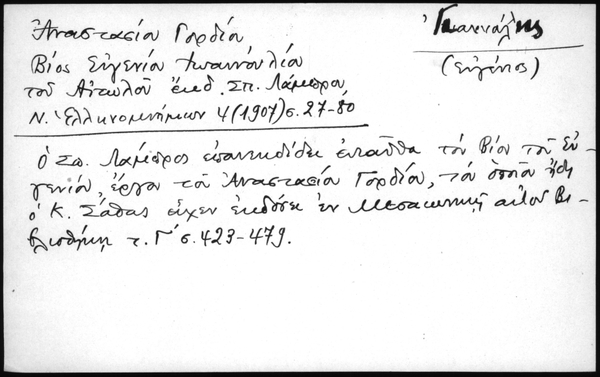 Ἀναστασίου Γορδίου
Βίος Εὐγενίου Ἰωαννουλίου
τοῦ Αἰτωλοῦ ἐκδ. Σπ. Λάμπρου,
Ν. Ἑλληνομνήμων 4 (1907) σ. 27-80
Γιαννούλης
(Εὐγένιος)
Ὁ Σπ. Λάμπρος ἐπανεκδίδει ἐνταῦθα τὸν Βίον τοῦ Εὐ-
γενίου, ἔργον τοῦ Ἀναστασίου Γορδίου, τὸν ὁποῖον ἤδη
ὁ Κ. Σάθας εἶχεν ἐκδόσει ἐν Μεσαιωνικῇ αὐτοῦ Βι-
βλιοθήκῃ τ. Γ΄ σ. 423-479.